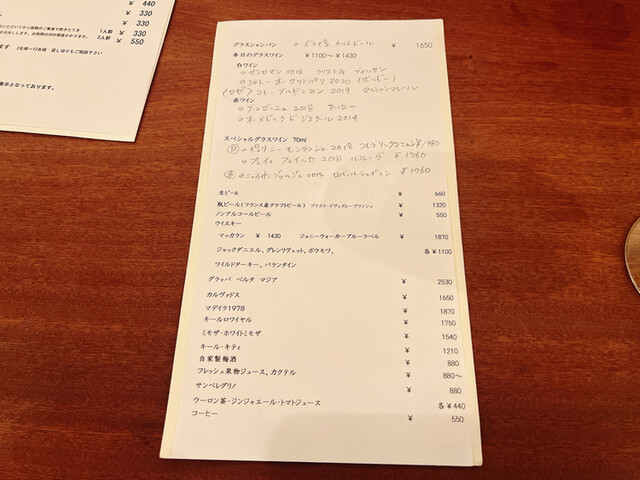 ¥ 440
¥ 330
¥ 330
1人前 ¥ 330
2人前 ¥ 550
2名様~17名様 貸し切りもご相談下さい
表示となっております。
グラスシャンパン カットドール ¥ 1650
本日のグラスワイン ¥1100~¥1430
白ワイン
2018
2020 (ボルドー)
(ロゼ) 2019
赤ワイン
2018
オーメドック ド ジスクール 2014
スペシャルグラスワイン 70ml
白 ピュリニー モンラッシェ 2018
プュイィ フュイッセ 2018 ¥1760
赤 ニュイサンジョルジュ ¥1760
生ビール ¥ 660
瓶ビール(フランス産クラフトビール) ¥ 1320
ノンアルコールビール ¥ 550
ウイスキー
マッカラン ¥ 1430 ジョニーウォーカーブルーラベル ¥ 1870
ジャックダニエル、グレンリヴェット、ボウモワ、 各¥1100
ワイルドターキー、バランタイン
グラッパ ベルタ マジア ¥ 2530
カルヴァドス ¥ 1650
マデイラ1978 ¥ 1870
キールロワイヤル ¥ 1750
ミモザ・ホワイトミモザ ¥ 1540
キール・キティ ¥ 1210
自家製梅酒 ¥ 880
フレッシュ果物ジュース、カクテル ¥ 880~
サンペレグリノ ¥ 880
ウーロン茶・ジンジャエール・トマトジュース 各¥440
コーヒー ¥ 550